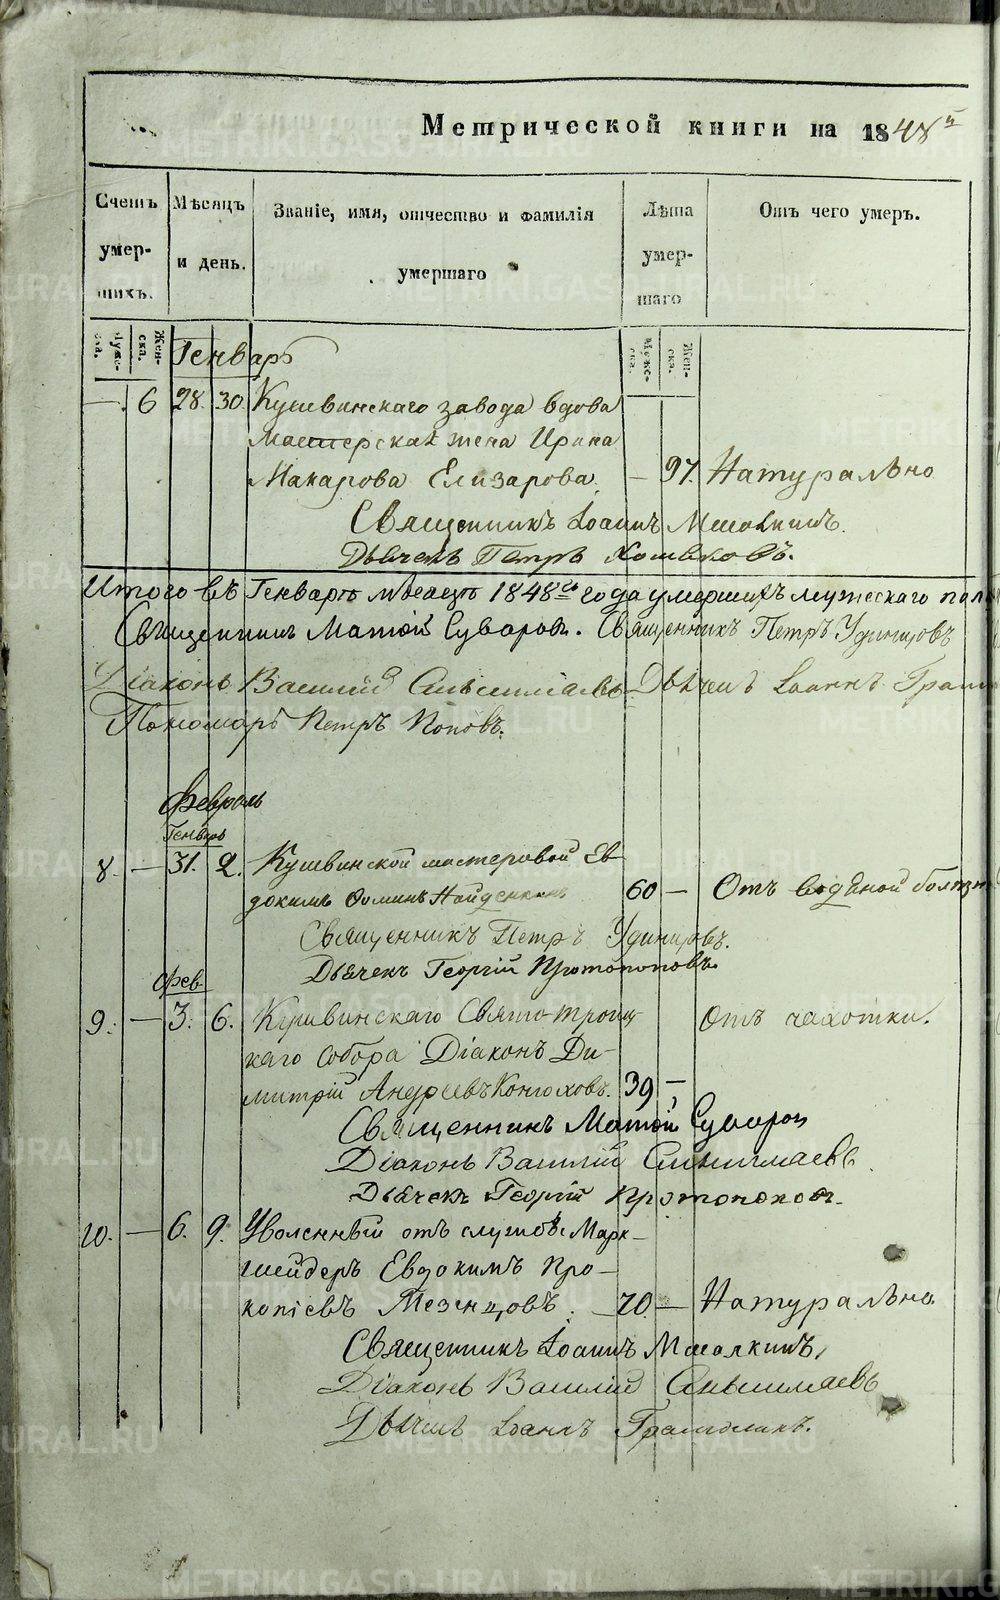 Метрической книги на 1848й
Счетъ умер- шихъ.
Мѣсяцъ и день.
Званіе, имя, отчество и фамилія умершаго
Лѣта умер- шаго
Отъ чего умеръ.
Муже- ска.
Жен- ска.
Муже- ска.
Жен- ска.
Генварь
— 6 28. 30. Кушвинскаго завода вдова
мастерская жена Ирина
Макарова Елизарова. — 97. Натурально
Священникъ Іоаннъ
Дьячекъ Петръ Хомяковъ.
Итого въ Генварѣ месяцѣ 1848го года умершихъ мужескаго пола
Священникъ Матѳій Суворовъ. Священникъ Петръ Удинцовъ
Діаконъ Василій Дьячекъ Іоаннъ
Пономарь Петръ Поповъ.
Февраль
Генварь
8. — 31. 2. Кушвинской мастеровой Ев-
докимъ Ѳоминъ Найденкинъ 60 — Отъ водяной болезни
Священникъ Петръ Удинцовъ.
Дьячекъ Георгій Протопоповъ.
Фев.
9. — 3. 6. Кушвинскаго Свято-Троиц- Отъ чахотки.
каго собора Діаконъ Ди-
митрій Андреевъ Конюховъ. 39 —
Священникъ Матѳій Суворовъ
Діаконъ Василій
Дьячекъ Георгій Протопоповъ.
10. — 6. 9. Уволенный отъ службы Марк-
шейдеръ Евдокимъ Про-
копіевъ Мезенцовъ. 70 — Натурально
Священникъ Іоаннъ
Діаконъ Василій
Дьячекъ Іоаннъ
METRIKI.GASO-URAL.RU